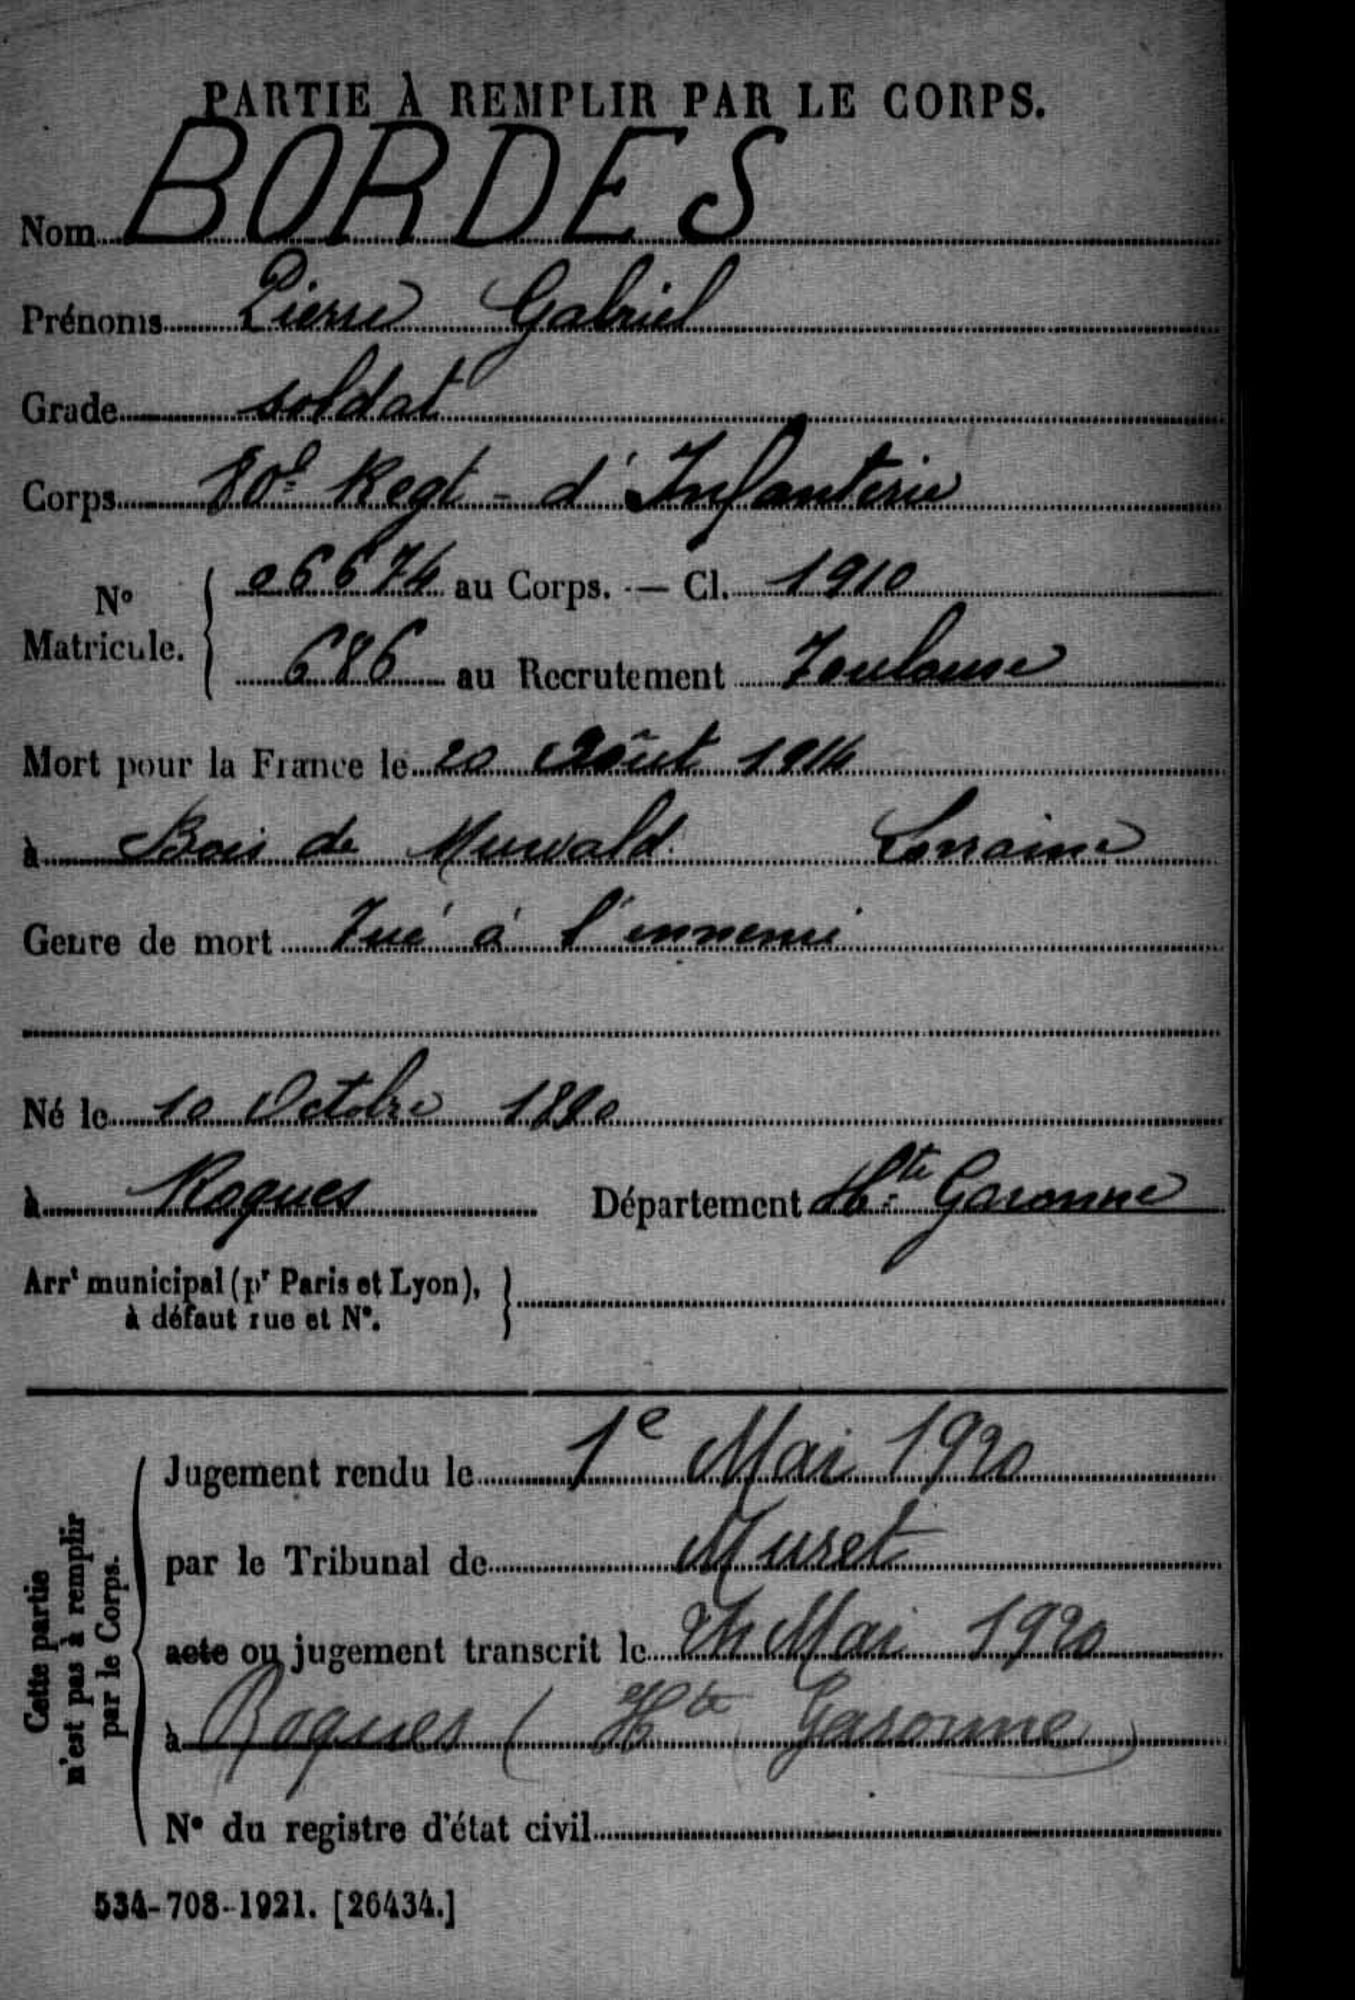 PARTIE À REMPLIR PAR LE CORPS.
Nom BORDES
Prénoms Pierre Gabriel
Grade soldat
Corps 80e Regt - d'Infanterie
No Matricule. { 06674 au Corps. — Cl. 1910
686 au Recrutement Toulouse
Mort pour la France le 20 Août 1914
à Bois de Muwald Lorraine
Genre de mort Tué à l'ennemi
Né le 10 Octobre 1890
à Roques Département Hte Garonne
Arrt municipal (pr Paris et Lyon),
à défaut rue et No.
Cette partie
n'est pas à remplir
par le Corps.
Jugement rendu le 1e Mai 1920
par le Tribunal de Muret
acte ou jugement transcrit le 24 Mai 1920
à Roques (Hte Garonne)
No du registre d'état civil
534-708-1921. [26434.]